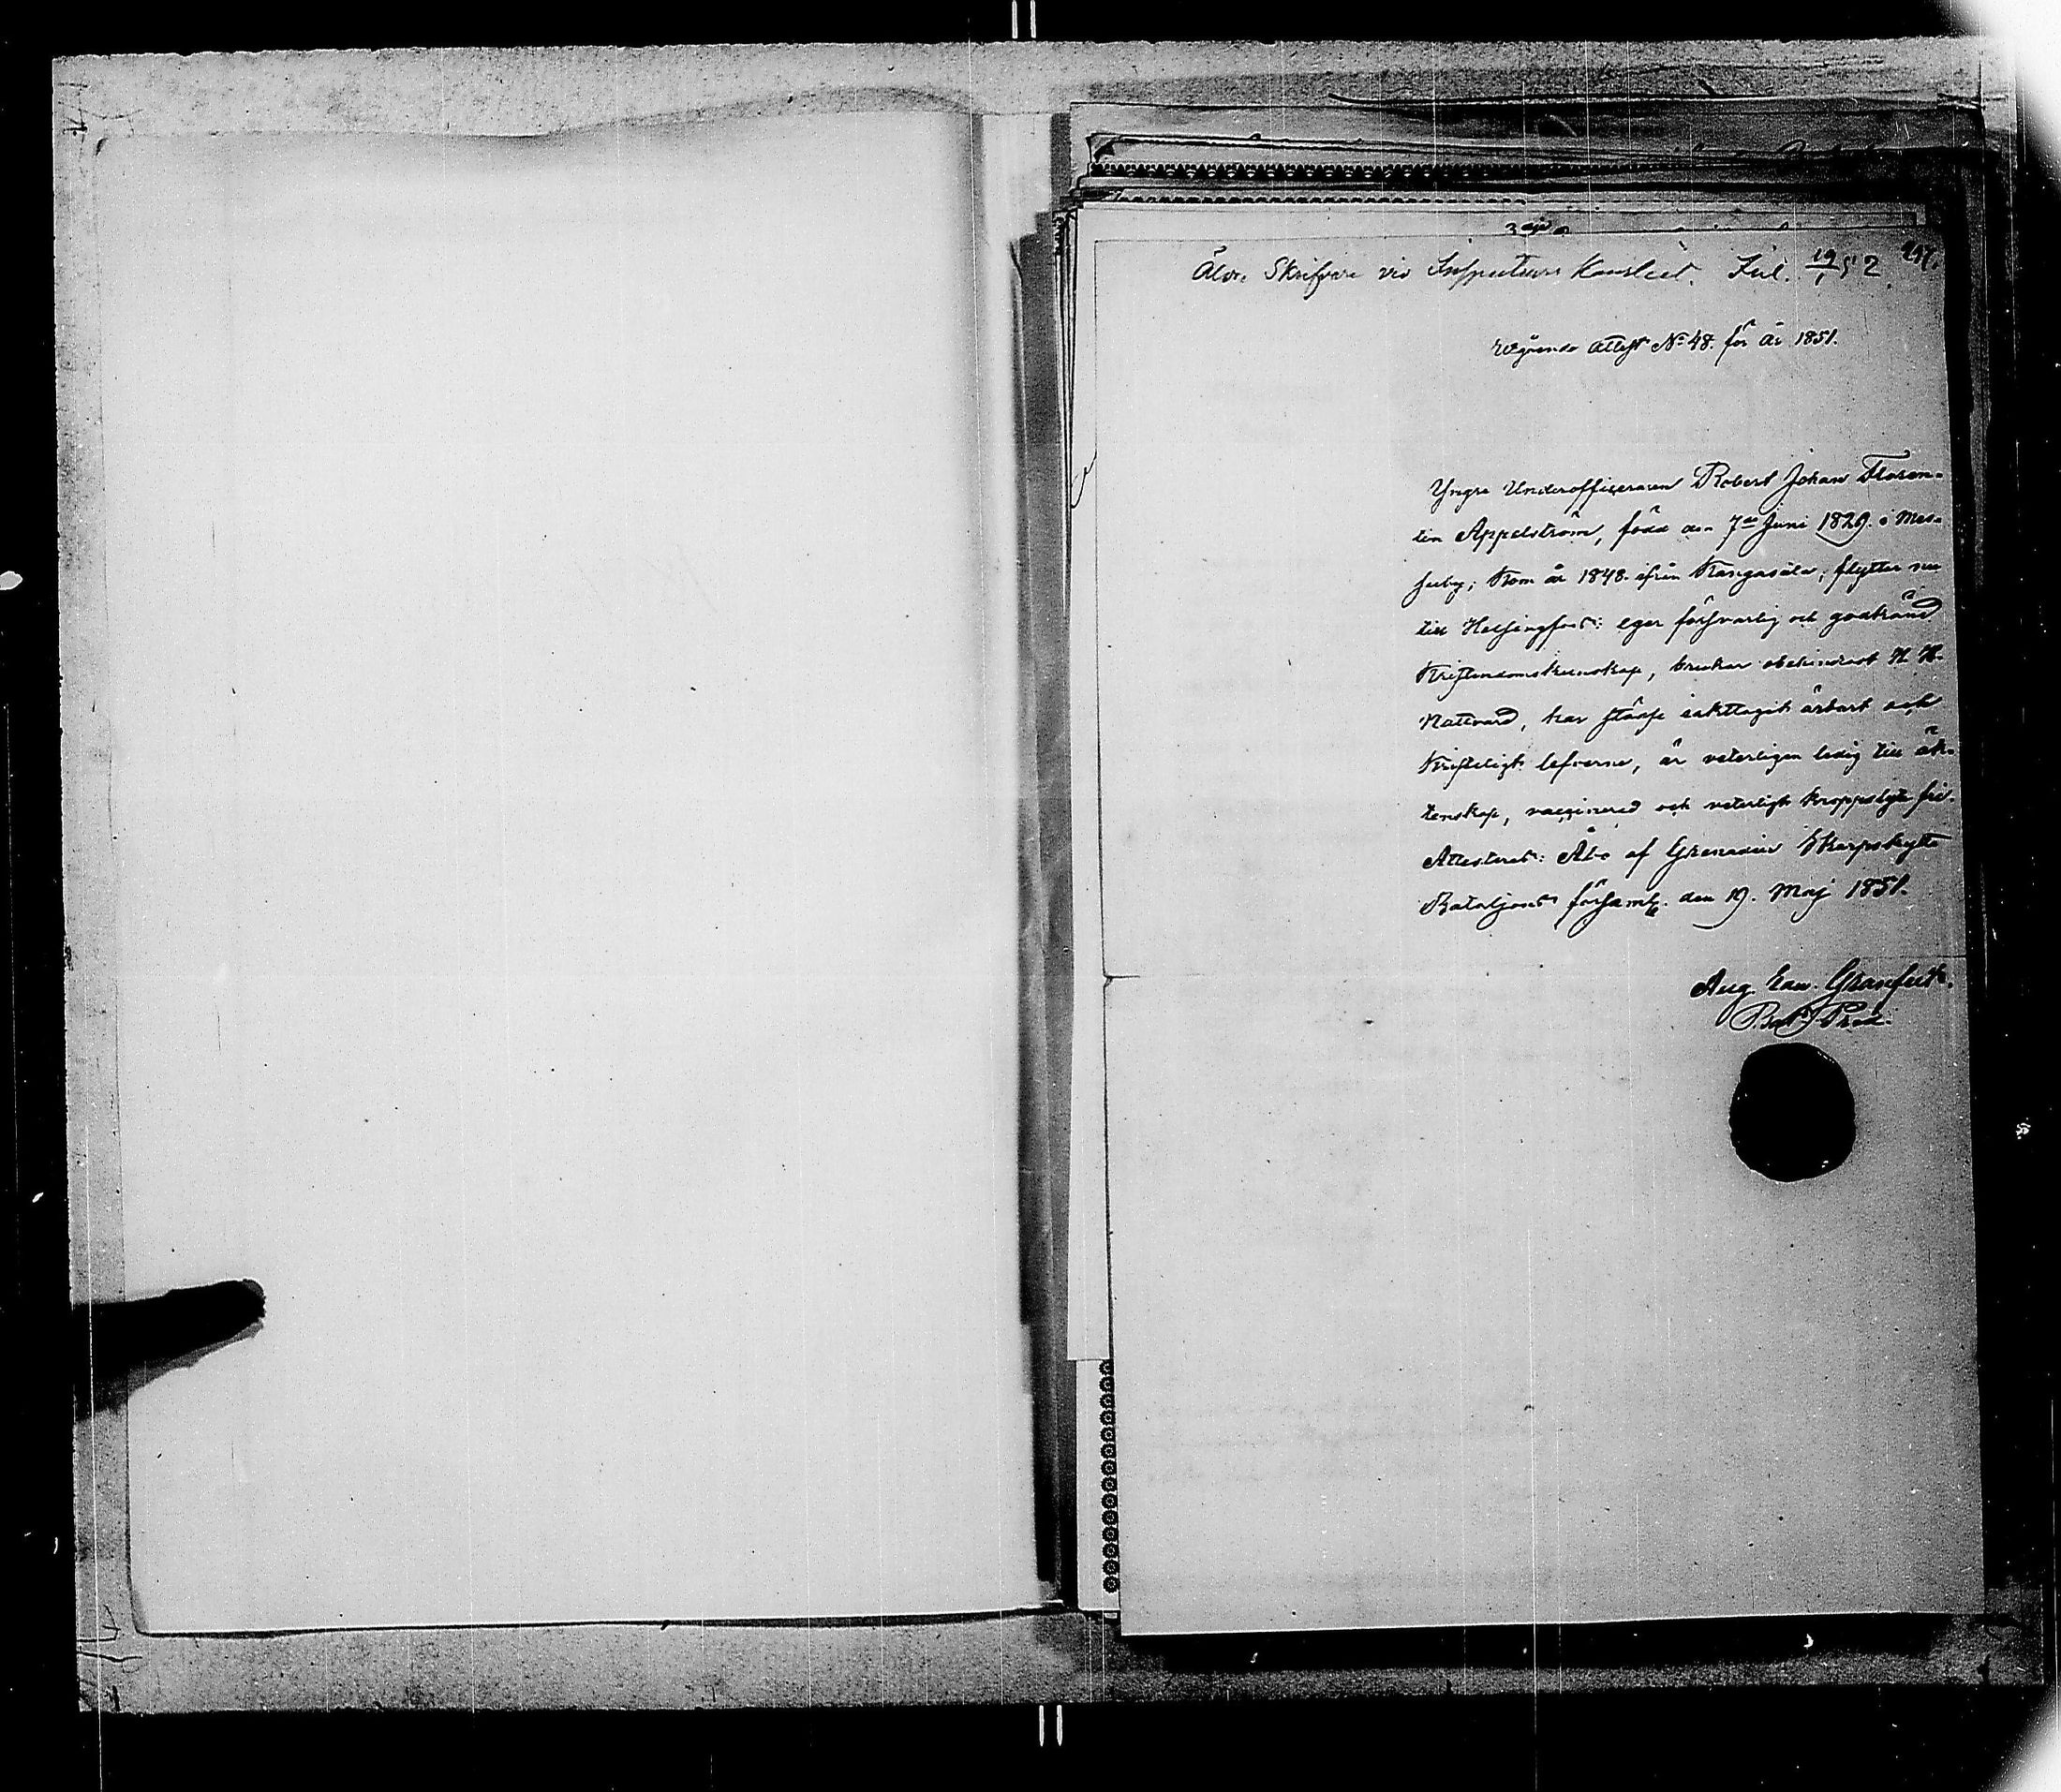 3dje
Äldre Skrifvare vid Inspecteurs Kansliet. Inl. 19/1 52 217.
Utgående Attest No 48. för år 1851.
Yngre Underofficeraren Robert Johan Floren-
tin Appelström, född den 7de Juni 1829. i Mes-
suby; kom år 1848. ifrån Kangasala; flytter nu
till Helsingfors: eger försvarlig och godkänd
Kristendomskunskap, brukar obehindrad H. H.
Nattvard, har städse iakttagit ärbart och
Kristeligt lefverne, är veterligen ledig till äk-
tenskap, vaccinerad och veterligt kroppslyte fri.
Attesterat: Åbo af Grenadier Skarpskytte
Bataljons församlg. den 19. Maj 1851.
Aug. Edv. Granfelt.
Bat. Pred.